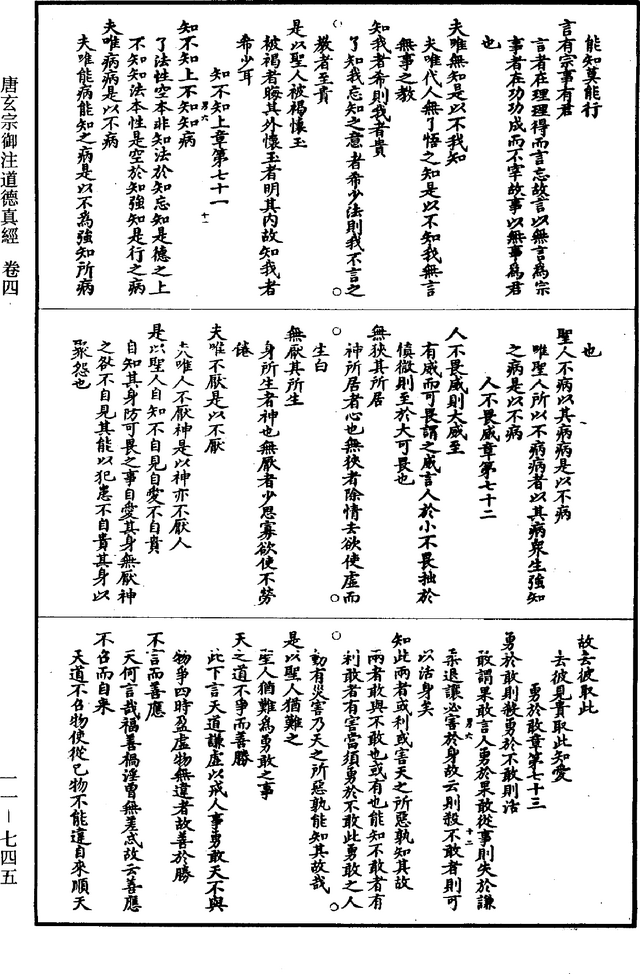 能知莫能行
言有宗事有君
言者在理理得而言忘故言以無言為宗
事者在功功成而不宰故事以無事為君
也
夫唯無知是以不我知
夫唯代人無了悟之知是以不知我無言
無事之教
知我者希則我者貴
了知我忘知之意者希少法則我不言之
教者至貴
是以聖人被褐懷玉
被褐者晦其外懷玉者明其內故知我者
希少耳
知不知上章第七十一
知不知上不知知病
男六
十一
了法性空本非知法於知忘知是德之上
不知知法本性是空於知強知是行之病
夫唯病病是以不病
夫唯能病能知之病是以不為強知所病
也
聖人不病以其病病是以不病
唯聖人所以不病病者以其病眾生強知
之病是以不病
人不畏威章第七十二
人不畏威則大威至
有威而可畏謂之威言人於小不畏拙於
慎微則至於大可畏也
無狹其所居
神所居者心也無狹者除情去欲使虛而
生白
無厭其所生
身所生者神也無厭者少思寡欲使不勞
倦
夫唯不厭是以不厭
夫唯人不厭神是以神亦不厭人
是以聖人自知不自見自愛不自貴
自知其身防可畏之事自愛其身無厭神
之咎不自見其能以犯患不自貴其身以
聚怨也
故去彼取此
去彼見貴取此知愛
勇於敢章第七十三
勇於敢則殺勇於不敢則活
敢謂果敢言人勇於果敢從事則失於謙
柔退讓必害於身故云則殺不敢者則可
男六
十二
以活身矣
知此兩者或利或害天之所惡孰知其故
兩者敢與不敢也或有也能知不敢者有
利敢者有害當須勇於不敢此勇敢之人
動有災害乃天之所惡孰能知其故哉
是以聖人猶難之
聖人猶難為勇敢之事
天之道不爭而善勝
此下言天道謙虛以戒人事勇敢天不與
物爭四時盈虛物無違者故善於勝
不言而善應
天何言哉福善禍淫曾無差忒故云善應
不召而自來
天道不召物使從己物不能違自來順天
唐玄宗御注道德真經 卷四
一一—七四五